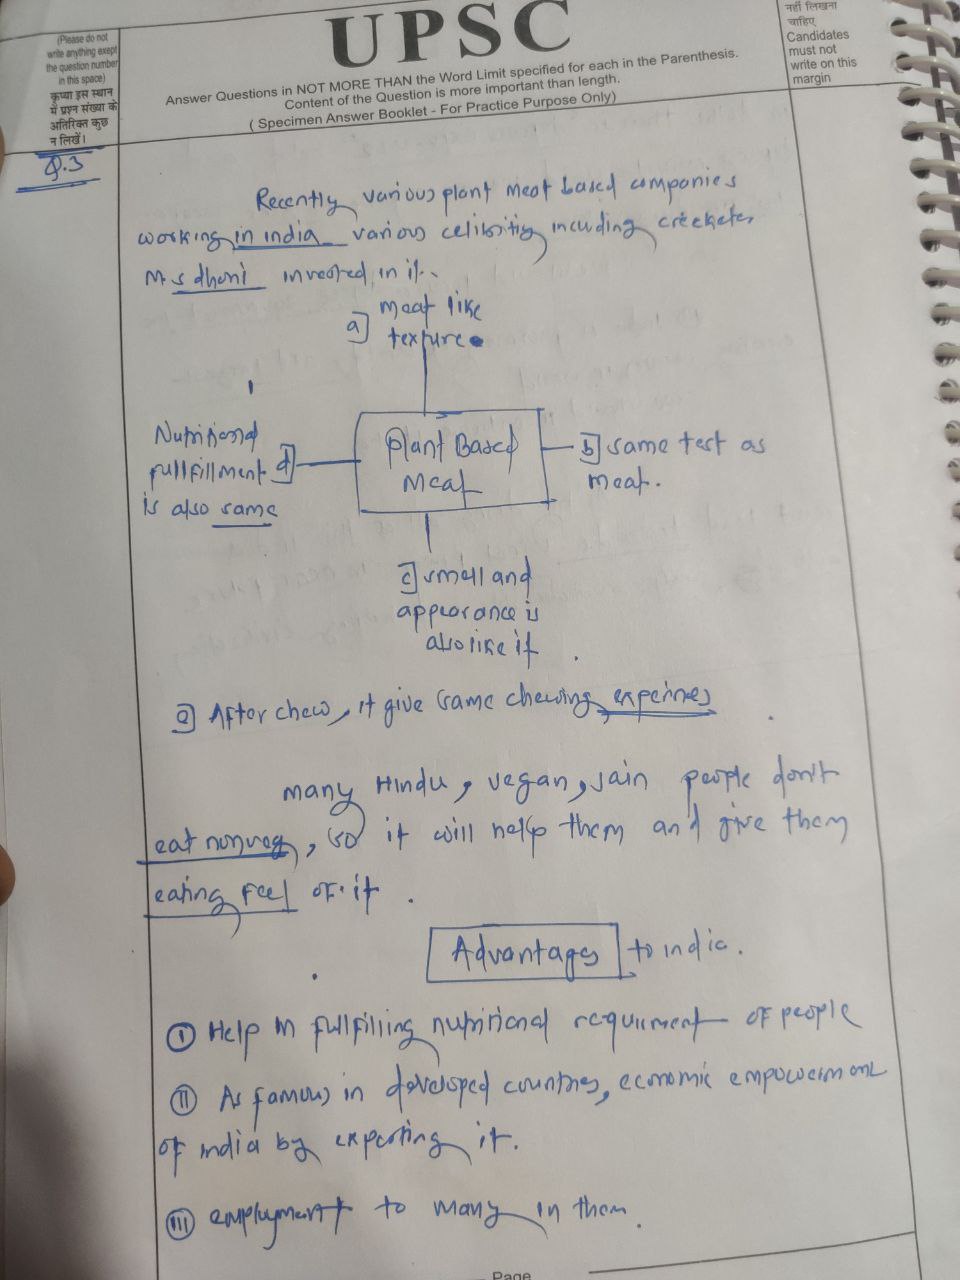 (Please do not
write anything exept
the question number
in this space)
कृप्या इस स्थान
में प्रश्न संख्या के
अतिरिक्त कुछ
न लिखें।
UPSC
Answer Questions in NOT MORE THAN the Word Limit specified for each in the Parenthesis.
Content of the Question is more important than length.
( Specimen Answer Booklet - For Practice Purpose Only)
नहीं लिखना
चाहिए
Candidates
must not
write on this
margin
Q.3
Recently various plant meat based companies
working in india various celibritiy incuding creeketer
M.s dhoni invested in it.
a] meat like
texture
Nutritional
fullfillment d]
is also same
Plant Based
Meat
b] same test as
meat.
c] smell and
appearance is
also like it
e] After chew, it give same chewing experines
many Hindu, vegan, Jain people don't
eat nonveg, so it will help them and give them
eating feel of it.
Advantages to india.
I Help in fullfilling nutritional requirment of people
II As famous in developed countries, economic empowerment
of india by exporting it.
III employment to many in them.
Page